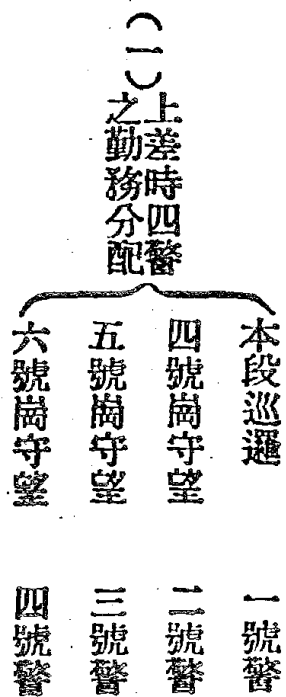 (一)上差時四警
之勤務分配
本段巡邏 一號警
四號崗守望 二號警
五號崗守望 三號警
六號崗守望 四號警